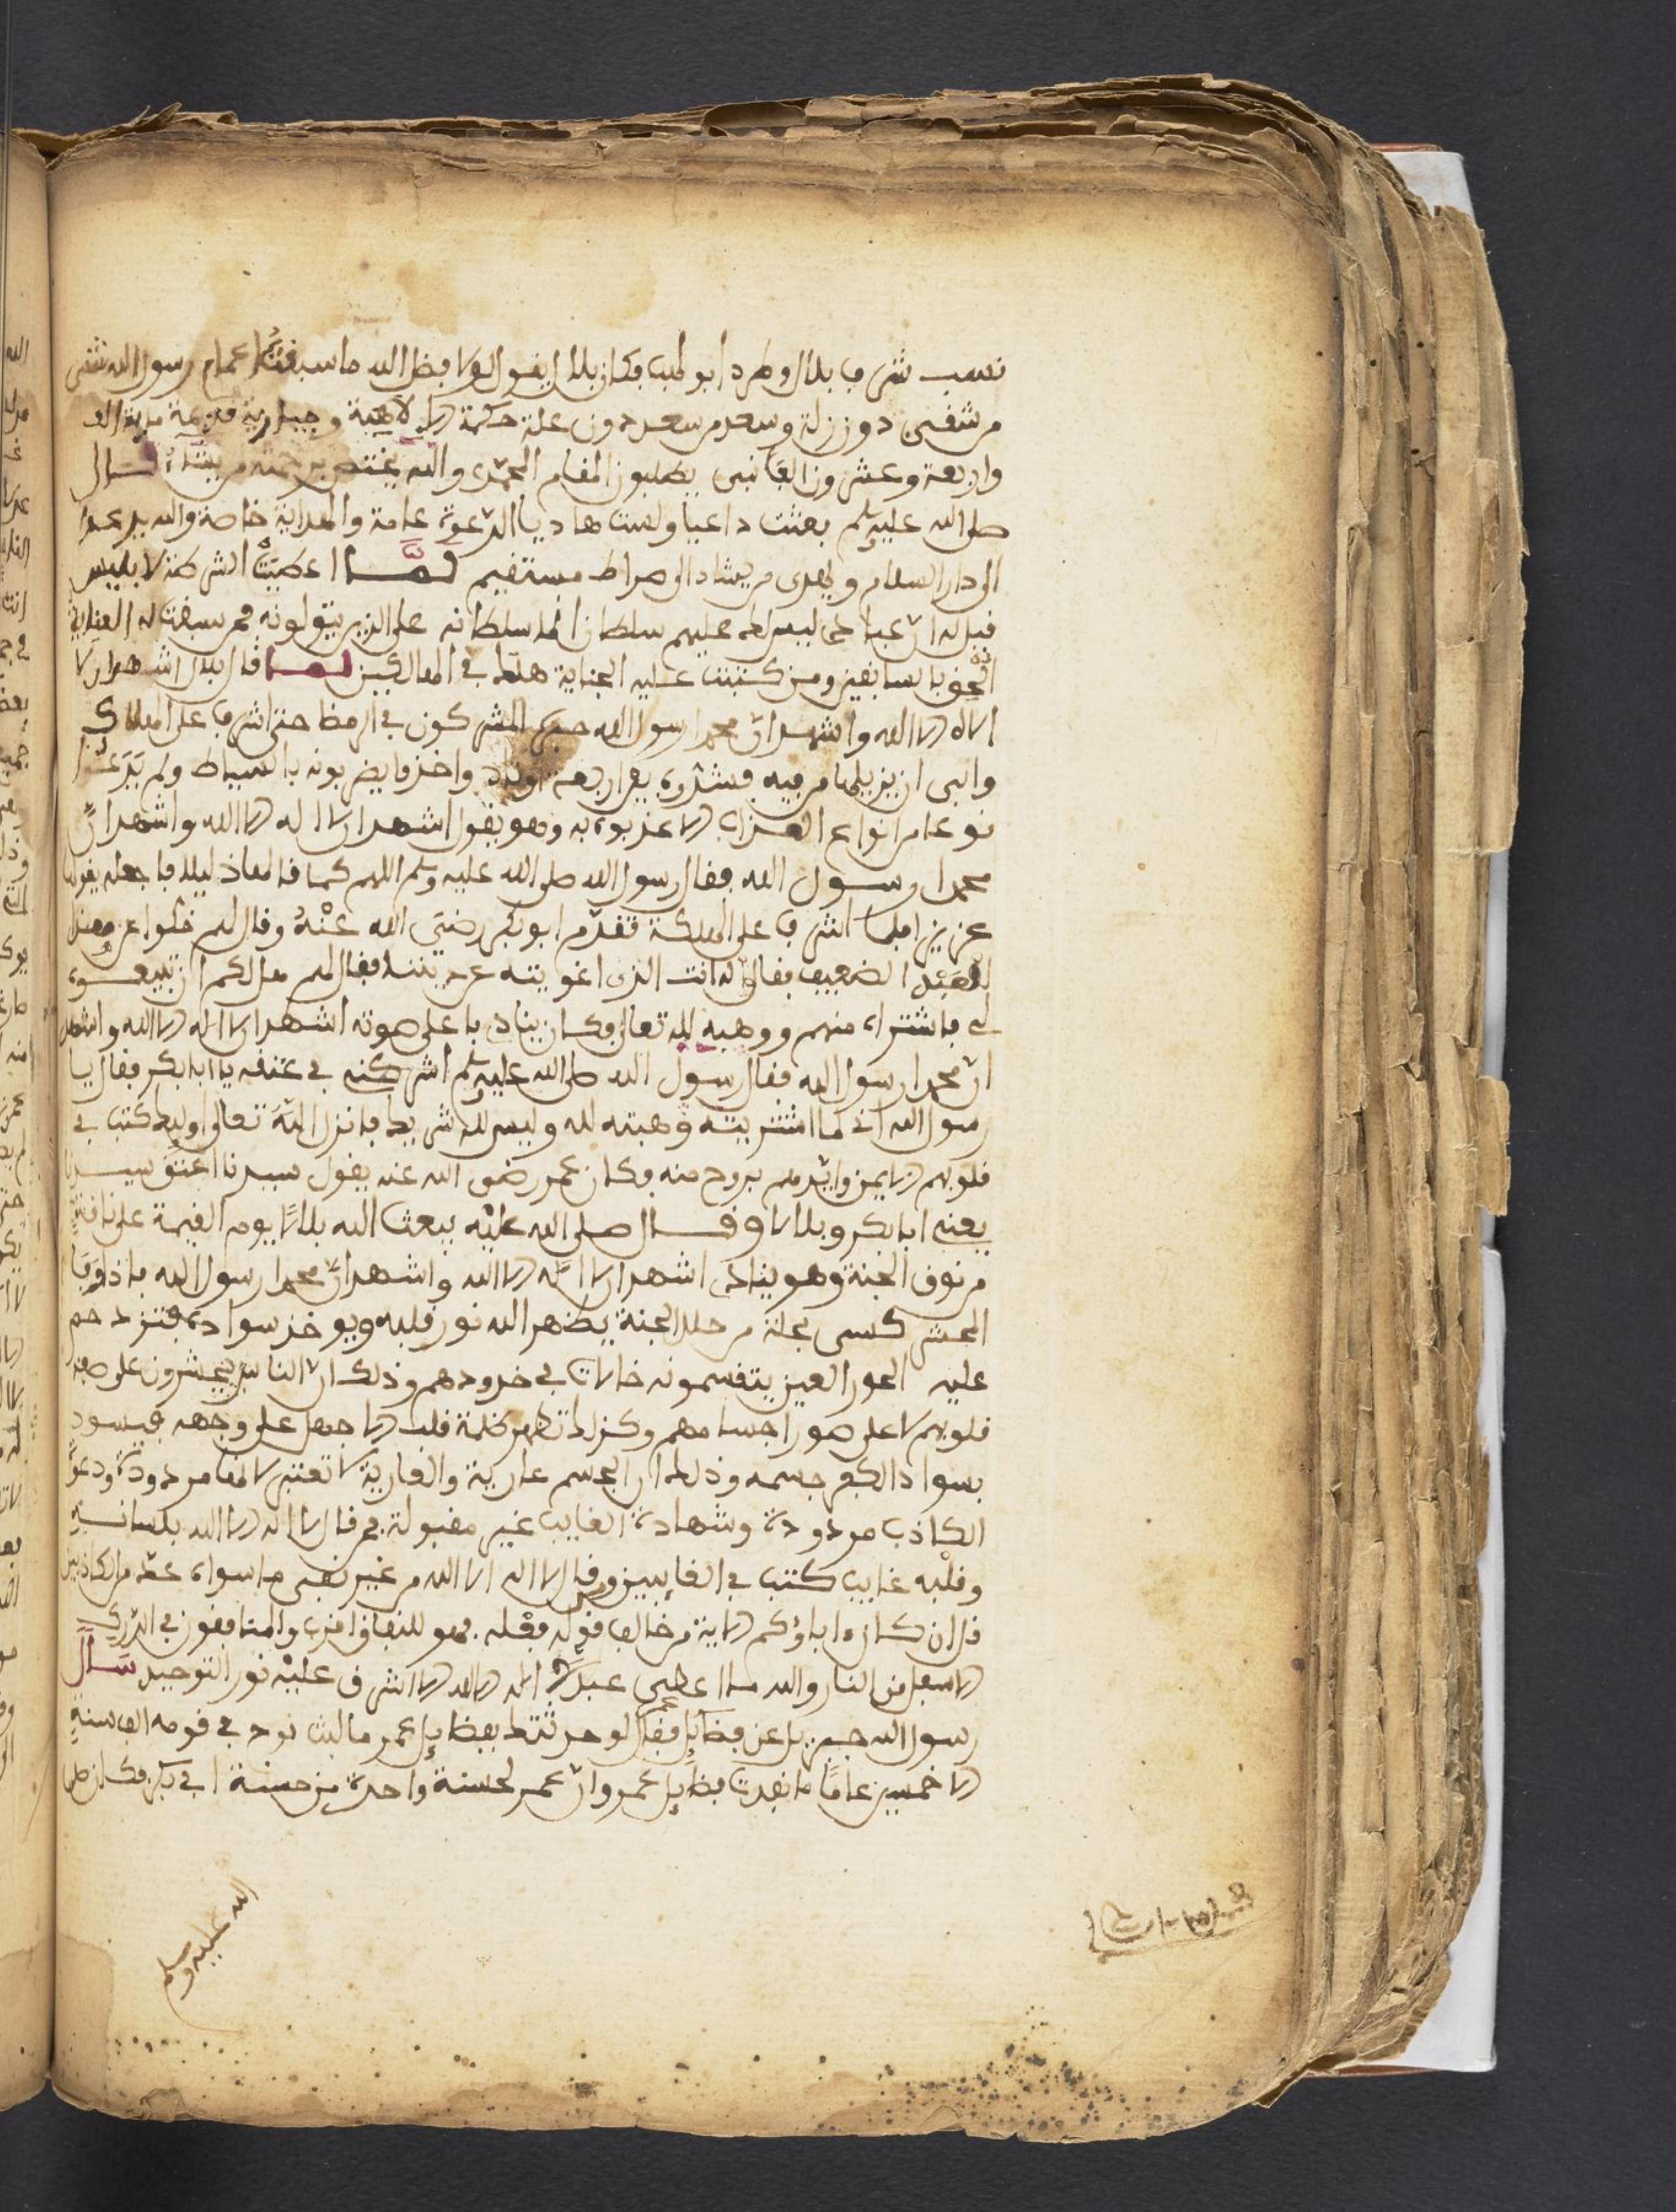 نسب شرف بلال وطرد ابو لهب فكان بلال يقول لولا فضل الله ما سبقت اعمام رسول الله شقي
من شقي دون زلة وسعد من سعد دون علة حكمة الاهية وجبارية قديمة مائة الف
واربعة وعشرون الفا نبي يطلبون المقام المحمدي والله يختص برحمته من يشاء قال
صلى الله عليه وسلم بعثت داعيا وليست هاديا الدعوة عامة والهداية خاصة والله يدعوا
الى دار السلام ويهدي من يشاء الى صراط مستقيم لما اعطيت الشرطة لابليس
قيل له ان عبادي ليس لك عليهم سلطان انما سلطانه على الذين يتولونه فمن سبقت له العناية
التحق بالسابقين ومن كتبت عليه الجناية هلك في الهالكين لما قال بلال اشهد ان لا
الاه الا الله واشهد ان محمدا رسول الله المشركون في الرمضا حتى اشرف على الهلاك
وابى ان يزيلها من فيه فشدوه بعد اربعة اوتاد واخذوا يضربونه بالسياط ولم يدعوا
نوعا من انواع العذاب الا عذبوه به وهو يقول اشهد ان لا اله الا الله واشهد ان
محمدا رسول الله فقال رسول الله صلى الله عليه وسلم اللهم كما قالها ذليلا فاجعله يقولها
عزيزا فلما اشرف على الهلكة تقدم ابو بكر رضي الله عنه وقال لهم خلوا عن هذا
العبد الضعيف فقالوا له انت الذي اغويته عن ديننا فقال لهم هل لكم ان تبيعوه
لي فاشتراه منهم ووهبه لله تعالى فكان ينادي باعلى صوته اشهد ان لا اله الا الله واشهد
ان محمدا رسول الله فقال رسول الله صلى الله عليه وسلم اشركني في عتقه يا ابا بكر فقال يا
رسول الله اني لما اشتريته وهبته لله وليس لله شريك فانزل الله تعالى اوليك كتب في
قلوبهم الايمن وايدهم بروح منه وكان عمر رضي الله عنه يقول سيدنا اعتق سيدنا
يعني ابا بكر وبلالا وقال صلى الله عليه يبعث الله بلالا يوم القيمة على ناقة
من نوق الجنة وهو ينادي اشهد ان لا اله الا الله واشهد ان محمدا رسول الله فاذا وفا
المحشر كسي بحلة من حلل الجنة يظهر الله نور قلبه ويوخذ سواده فتزدحم
عليه الحور العين يتقسمونه خالات في خدودهم وذلك ان الناس يحشرون على صور
قلوبهم لا على صور اجسامهم وكذلك تظهر ظلمة قلب ابا جهل على وجهه فيسود
بسواد الكفر جسمه وذلك ان الجسم عارية والعارية لا تعتبر لانها مردودة ودعوة
الكاذب مردودة وشهادة الغايب غير مقبولة فمن قال لا اله الا الله بلسانه
وقلبه غايب كتب في الغايبين ومن قال لا اله الا الله من غير نفي ما سواه عد من الكاذبين
قل ان كان ءاباؤكم الاية من خالف قوله فعله فهو للنفاق اقرب والمنافقون في الدرك
الاسفل من النار والله ما اعطي عبد لا اله الا الله الا اشرق عليه نور التوحيد سال
رسول الله جبريل عن فضايل عمر فقال لو حدثتك بفضايل عمر ما لبث نوح في قومه الف سنة
الا خمسين عاما ما نفدت فضايل عمر وان عمر لحسنة واحدة من حسنة ابي بكر فكان صلى
الله عليه وسلم